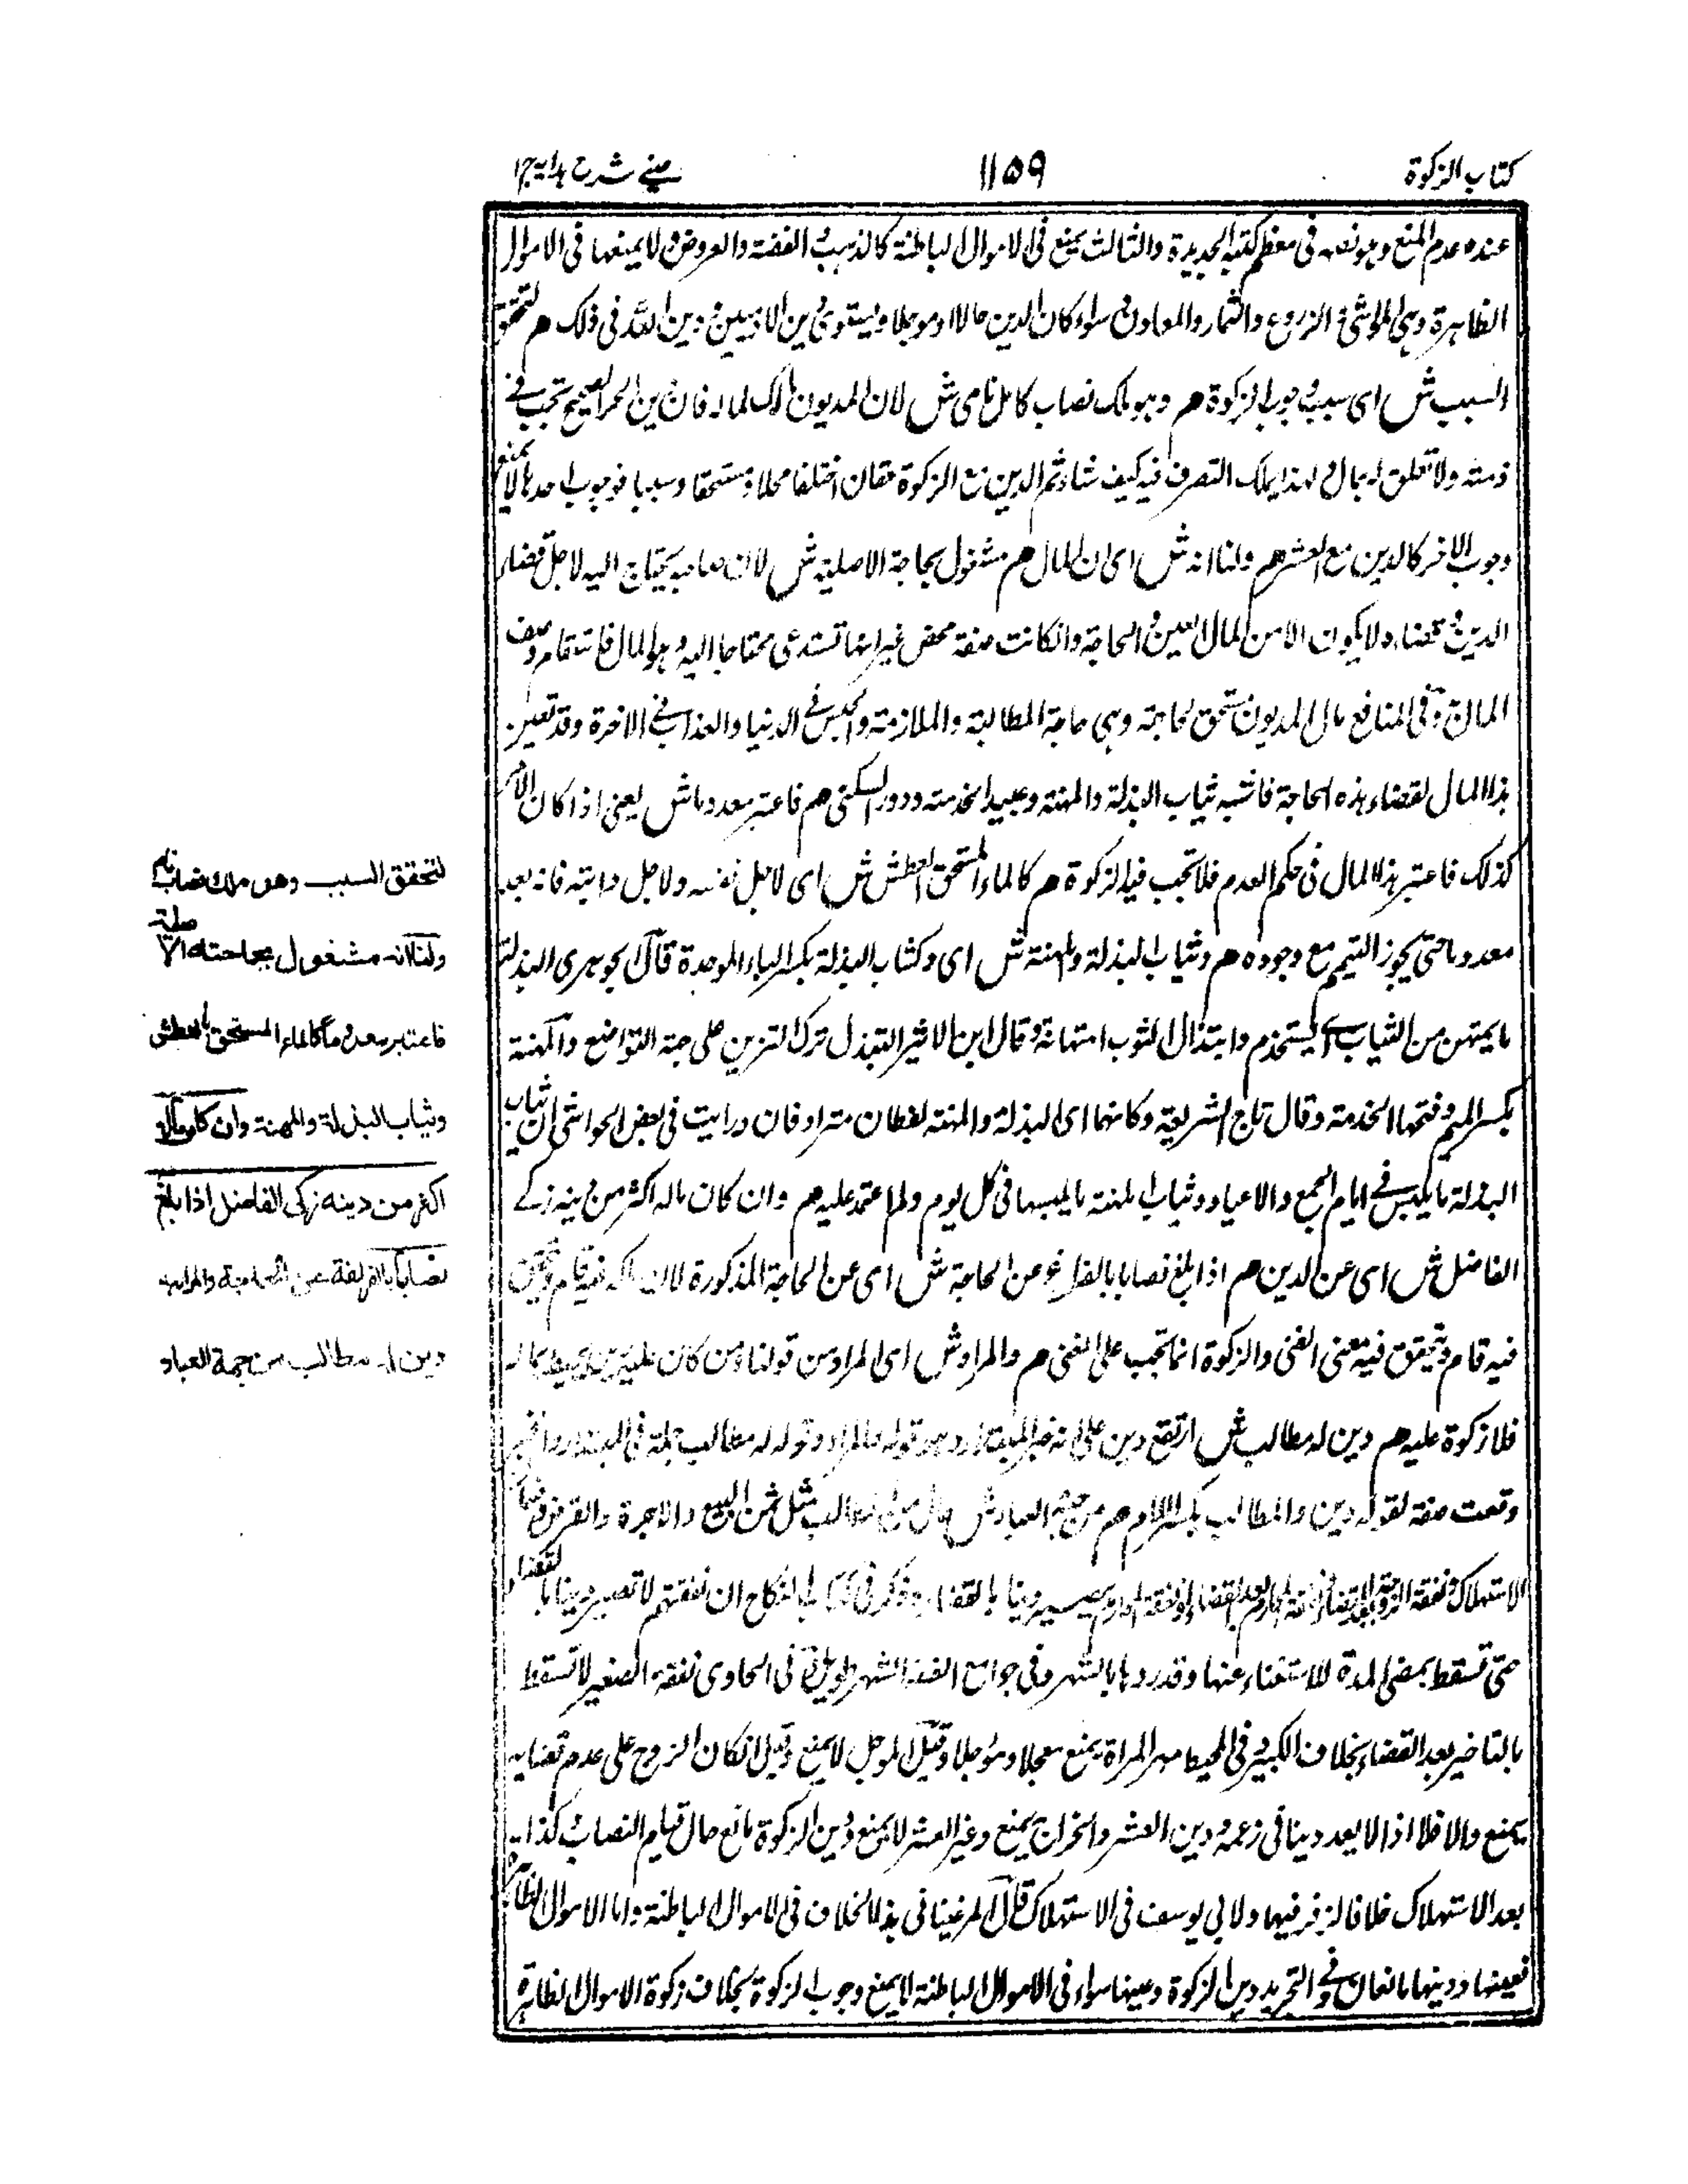 كتاب الزكوة
١١٥٩
عينى شرح هدايه ج١
عنده عدم المنع وهو نصه فى معظم كتبه الجديدة والثالث يمنع فى الاموال الباطنة كالذهب والفضة والعروض ولا يمنعها فى الاموال
الظاهرة وهى المواشى والزروع والثمار والمعادن سواء كان الدين حالا او مؤجلا ويستوى دين الادميين ودين الله فى ذلك هم لتحقق
السبب ش اى سبب وجوب الزكوة هم وهو ملك نصاب كامل نامى ش لان المديون مالك لماله فان دين الحر الصحيح تجب فى
ذمته ولا تعلق له بماله ولهذا يملك التصرف فيه كيف شاء ثم الدين مع الزكوة حقان اختلفا محلا ومستحقا وسببا فوجوب احدهما لا يمنع
وجوب الاخر كالدين مع العشر هم ولنا انه ش اى ان المال هم مشغول بحاجة الاصلية ش لان صاحبه يحتاج اليه لاجل قضاء
الدين وقضاء ولا يكون الا من المال العين والحاجة وان كانت صفة محض غير انها تستدعى محتاجا اليه وهو المال فاقام وصف
المال وفى المنافع مال المديون مستحق لحاجته وهى حاجة المطالبة والملازمة والحبس فى الدنيا والعذاب فى الاخرة وقد تعين
هذا المال لقضاء هذه الحاجة فاشبه ثياب البذلة والمهنة وعبيد الخدمة ودور السكنى هم فاعتبر معدوما ش يعنى اذا كان الامر
كذلك فاعتبر هذا المال فى حكم العدم فلا تجب فيه الزكوة هم كالماء المستحق بالعطش ش اى لاجل نفسه ولاجل دابته فانه يعد
معدوما حتى يجوز التيمم مع وجوده هم وثياب البذلة والمهنة ش اى وكثياب البذلة بكسر الباء الموحدة قال الجوهرى البذلة
ما يمتهن من الثياب اى يستخدم وابتذال الثوب امتهانه وقال ابن الاثير التبذل ترك التزين على جهة التواضع والمهنة
بكسر الميم وفتحها الخدمة وقال تاج الشريعة وكانهما اى البذلة والمهنة لفظان مترادفان ورايت فى بعض الحواشى ان ثياب
البذلة ما يلبس فى ايام الجمع والاعياد وثياب المهنة ما يلبسها فى كل يوم ولم اعتمد عليه هم وان كان ماله اكثر من دينه زكى
الفاضل ش اى عن الدين هم اذا بلغ نصابا بالفراغه عن الحاجة ش اى عن الحاجة المذكورة لان ملكه فيه قام
فيه قام وتحقق فيه معنى الغنى والزكوة انما تجب على الغنى هم والمراد ش اى المراد من قولنا ومن كان عليه دين يحيط بماله
فلا زكوة عليه هم دين له مطالب ش ارتفع دين على انه خبر المبتداء وهو قوله والمراد وقوله له مطالب جملة فى المبتداء والخبر
وقعت صفة لقوله دين والمطالب بكسر اللام هم من جهة العباد ش مثل ثمن المبيع والاجرة والقرض وضمان
الاستهلاك ونفقة الزوجة بعد القضاء ونفقة المحارم بعد القضاء ونفقة المحارم يصير دينا بالقضاء وذكر فى كتاب النكاح ان نفقتهم لا تصير دينا بالقضاء
حتى تسقط بمضى المدة للاستغناء عنها وقدروها بالشهر وفى جوامع الفقه الشهر طويل وفى الحاوى نفقة الصغير لا تسقط
بالتاخير بعد القضاء بخلاف الكبير وفى المحيط مهر المراة يمنع معجلا ومؤجلا وقيل المؤجل لا يمنع وقيل ان كان الزوج على عدم قضايه
يمنع والا فلا اذ لا يعد دينا فى زعمه ودين العشر والخراج يمنع وغير العشر لا يمنع ودين الزكوة مانع حال قيام النصاب وكذا
بعد الاستهلاك خلافا لزفر فيهما ولابى يوسف فى الاستهلاك قال المرغينانى هذا الخلاف فى الاموال الباطنة واما الاموال الظاهرة
فعينها ودينها مانعان وفى التجريد دين الزكوة وعينها سواء فى الاموال الباطنة لا يمنع وجوب الزكوة بخلاف زكوة الاموال الظاهرة
لتحقق السبب وهو ملك نصاب تام
ولنا انه مشغول بحاجته الاصلية
فاعتبر معدوما كالماء المستحق بالعطش
وثياب البذلة والمهنة وان كان ماله
اكثر من دينه زكى الفاضل اذا بلغ
نصابا بالفراغه عن الحاجة والمراد به
دين له مطالب من جهة العباد